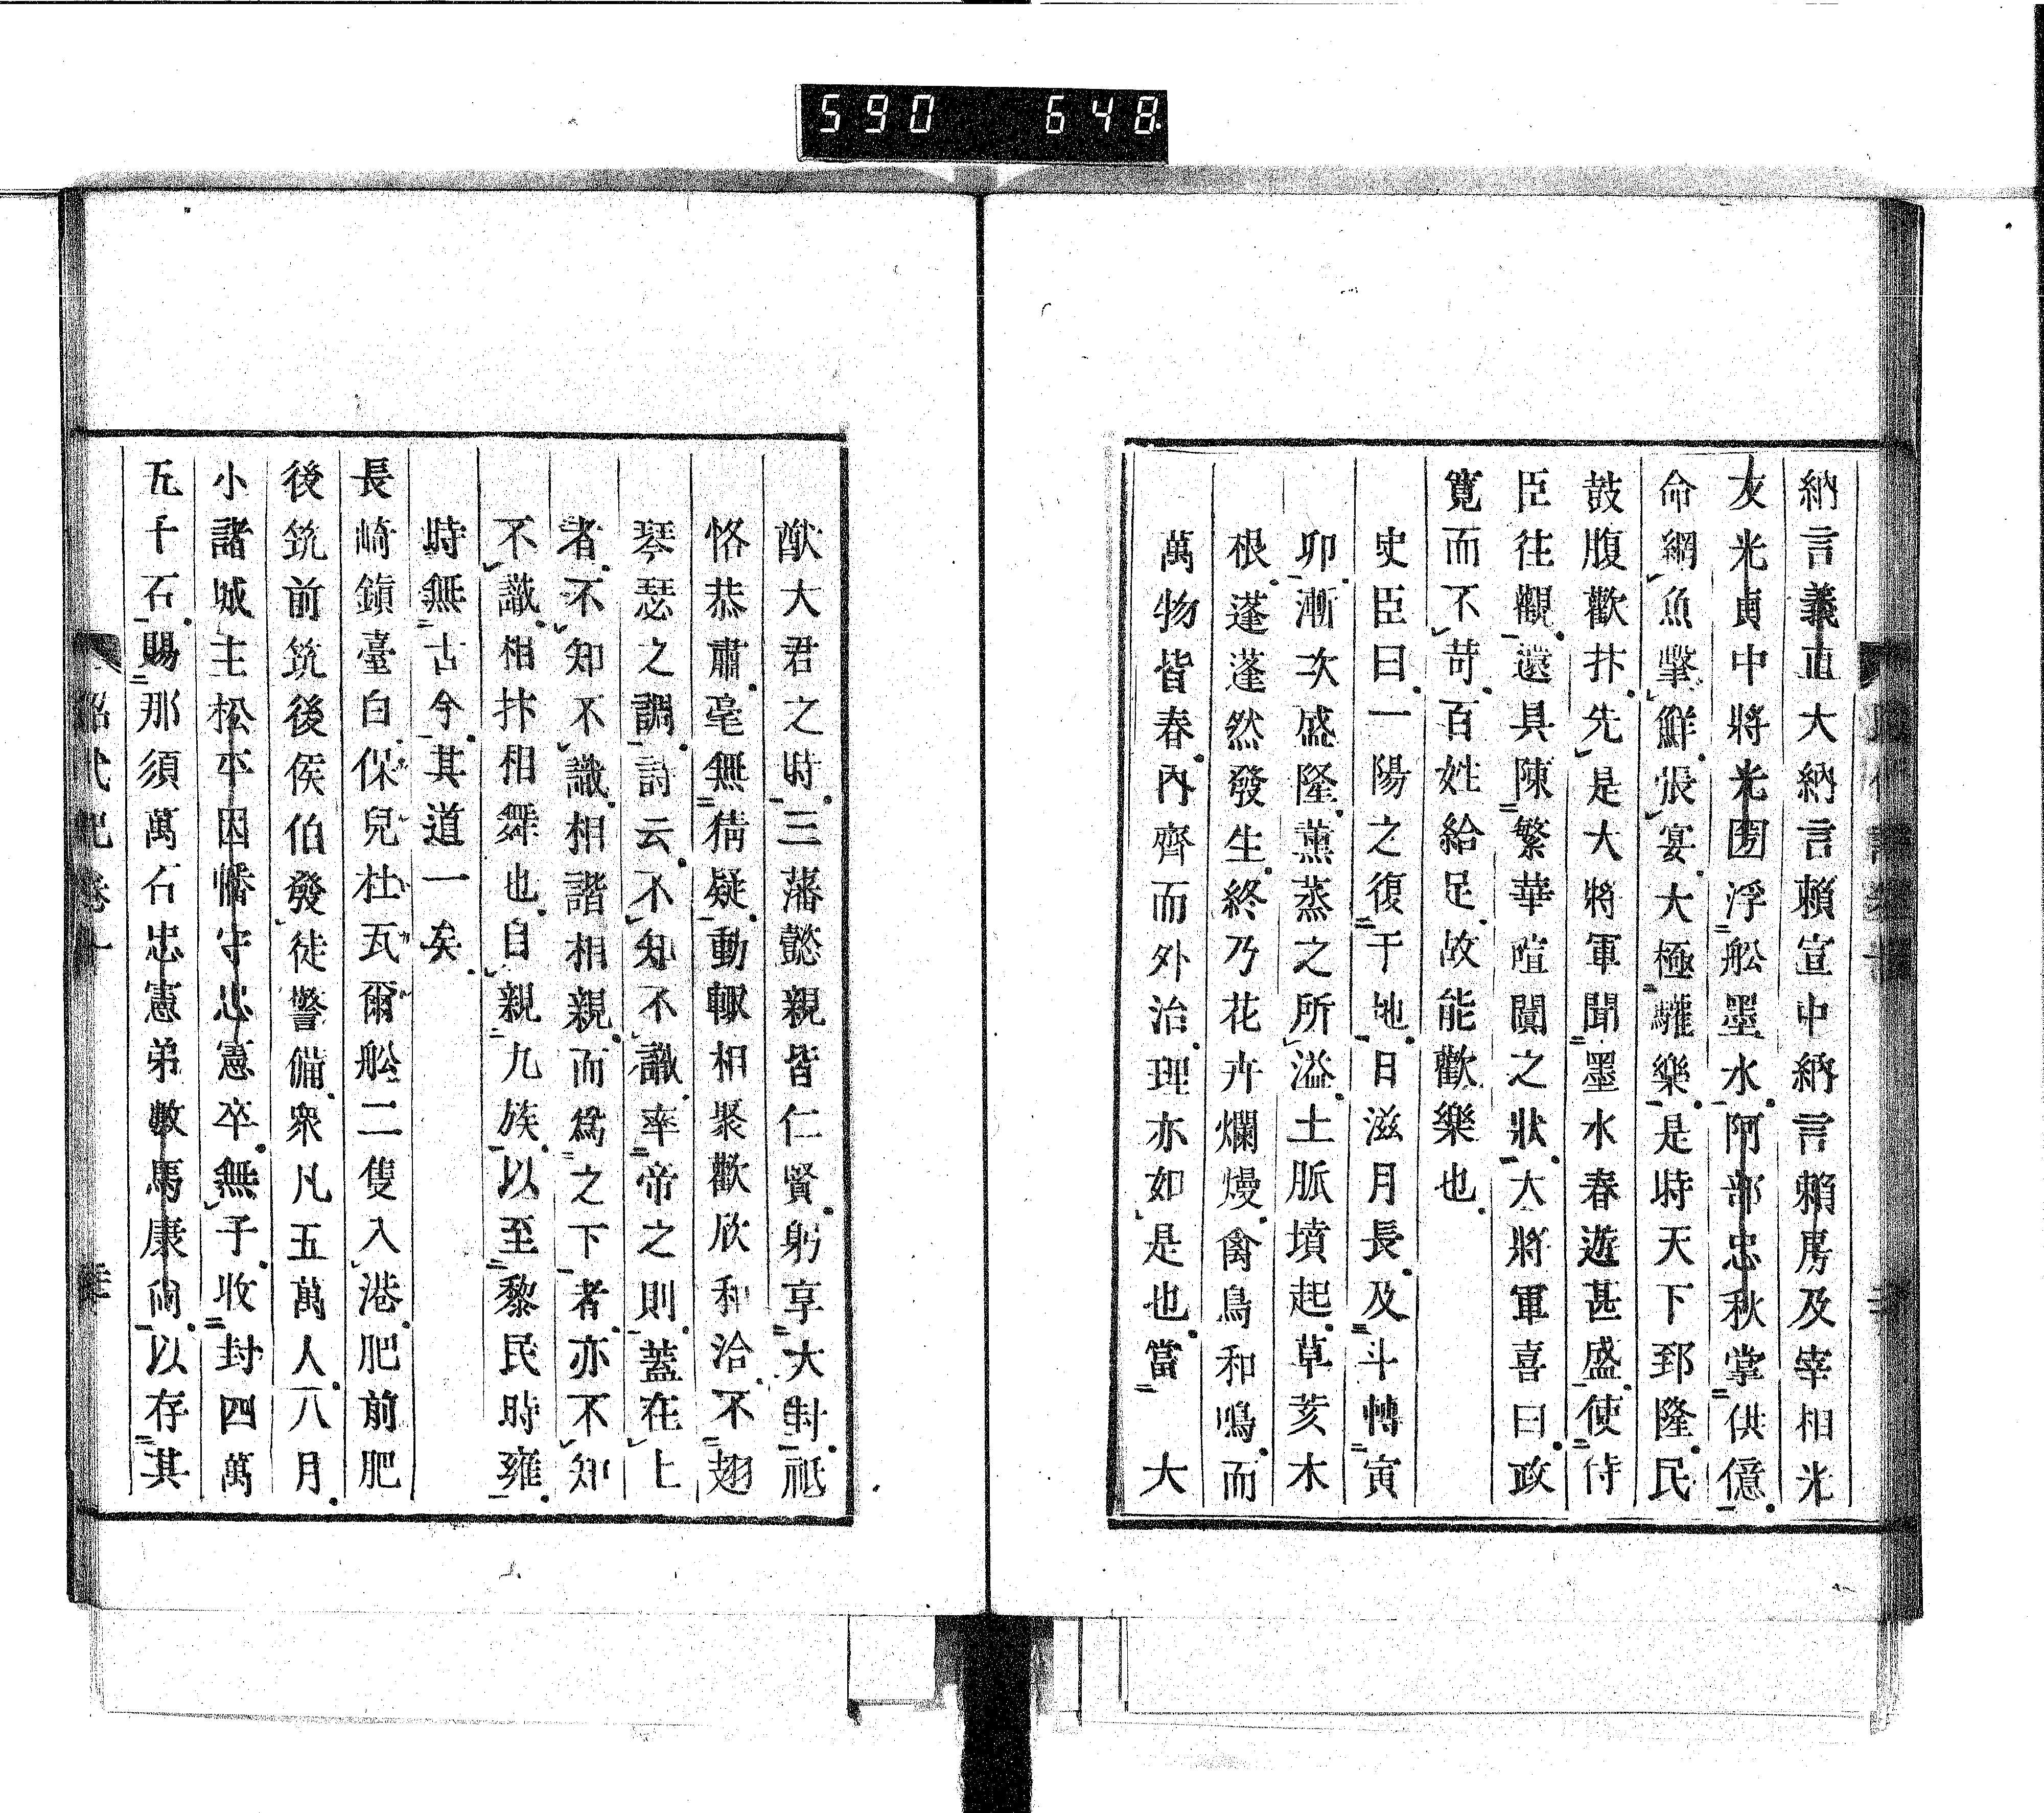 590 648
納言義直大納言賴宣中納言賴房及宰相光
友光貞中將光圀浮舩墨水阿部忠秋掌供億
命網魚擊鮮張宴大極驩樂是時天下郅隆民
鼓腹歡抃先是大將軍聞墨水春遊甚盛使侍
臣往觀還具陳繁華喧闐之狀大將軍喜曰政
寬而不苛百姓給足故能歡樂也
史臣曰一陽之復于地日滋月長及斗轉寅
卯漸次盛隆薰蒸之所溢土脈墳起草荄木
根蓬蓬然發生終乃花卉爛熳禽鳥和鳴而
萬物皆春內齊而外治理亦如是也當 大
猷大君之時三藩懿親皆仁賢躬享大封祗
恪恭肅毫無猜疑動輒相聚歡欣和洽不翅
琴瑟之調詩云不知不識率帝之則蓋在上
者不知不識相諧相親而爲之下者亦不知
不識相抃相舞也自親九族以至黎民時雍
時無古今其道一矣
長崎鎮臺白保兒杜瓦爾舩二隻入港肥前肥
後筑前筑後侯伯發徒警備衆凡五萬人八月
小諸城主松平因幡守忠憲卒無子收封四萬
五千石賜那須萬石忠憲弟數馬康尚以存其
昭代記卷十